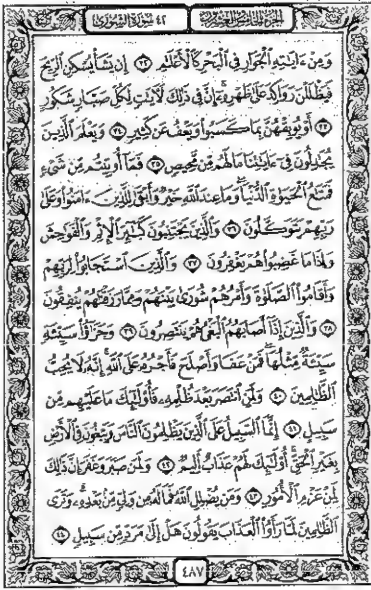 الجزء الخامس والعشرون ٤٢ سورة الشورى
وَمِنْ ءَايَٰتِهِ ٱلْجَوَارِ فِى ٱلْبَحْرِ كَٱلْأَعْلَٰمِ ٣٢ إِن يَشَأْ يُسْكِنِ ٱلرِّيحَ
فَيَظْلَلْنَ رَوَاكِدَ عَلَىٰ ظَهْرِهِۦٓ إِنَّ فِى ذَٰلِكَ لَءَايَٰتٍ لِّكُلِّ صَبَّارٍ شَكُورٍ
٣٣ أَوْ يُوبِقْهُنَّ بِمَا كَسَبُوا۟ وَيَعْفُ عَن كَثِيرٍ ٣٤ وَيَعْلَمَ ٱلَّذِينَ
يُجَٰدِلُونَ فِىٓ ءَايَٰتِنَا مَا لَهُم مِّن مَّحِيصٍ ٣٥ فَمَآ أُوتِيتُم مِّن شَىْءٍ
فَمَتَٰعُ ٱلْحَيَوٰةِ ٱلدُّنْيَا وَمَا عِندَ ٱللَّهِ خَيْرٌ وَأَبْقَىٰ لِلَّذِينَ ءَامَنُوا۟ وَعَلَىٰ
رَبِّهِمْ يَتَوَكَّلُونَ ٣٦ وَٱلَّذِينَ يَجْتَنِبُونَ كَبَٰٓئِرَ ٱلْإِثْمِ وَٱلْفَوَٰحِشَ
وَإِذَا مَا غَضِبُوا۟ هُمْ يَغْفِرُونَ ٣٧ وَٱلَّذِينَ ٱسْتَجَابُوا۟ لِرَبِّهِمْ
وَأَقَامُوا۟ ٱلصَّلَوٰةَ وَأَمْرُهُمْ شُورَىٰ بَيْنَهُمْ وَمِمَّا رَزَقْنَٰهُمْ يُنفِقُونَ
٣٨ وَٱلَّذِينَ إِذَآ أَصَابَهُمُ ٱلْبَغْىُ هُمْ يَنتَصِرُونَ ٣٩ وَجَزَٰٓؤُا۟ سَيِّئَةٍ
سَيِّئَةٌ مِّثْلُهَا فَمَنْ عَفَا وَأَصْلَحَ فَأَجْرُهُۥ عَلَى ٱللَّهِ إِنَّهُۥ لَا يُحِبُّ
ٱلظَّٰلِمِينَ ٤٠ وَلَمَنِ ٱنتَصَرَ بَعْدَ ظُلْمِهِۦ فَأُو۟لَٰٓئِكَ مَا عَلَيْهِم مِّن
سَبِيلٍ ٤١ إِنَّمَا ٱلسَّبِيلُ عَلَى ٱلَّذِينَ يَظْلِمُونَ ٱلنَّاسَ وَيَبْغُونَ فِى ٱلْأَرْضِ
بِغَيْرِ ٱلْحَقِّ أُو۟لَٰٓئِكَ لَهُمْ عَذَابٌ أَلِيمٌ ٤٢ وَلَمَن صَبَرَ وَغَفَرَ إِنَّ ذَٰلِكَ
لَمِنْ عَزْمِ ٱلْأُمُورِ ٤٣ وَمَن يُضْلِلِ ٱللَّهُ فَمَا لَهُۥ مِن وَلِىٍّ مِّنۢ بَعْدِهِۦ وَتَرَى
ٱلظَّٰلِمِينَ لَمَّا رَأَوُا۟ ٱلْعَذَابَ يَقُولُونَ هَلْ إِلَىٰ مَرَدٍّ مِّن سَبِيلٍ ٤٤
٤٨٧